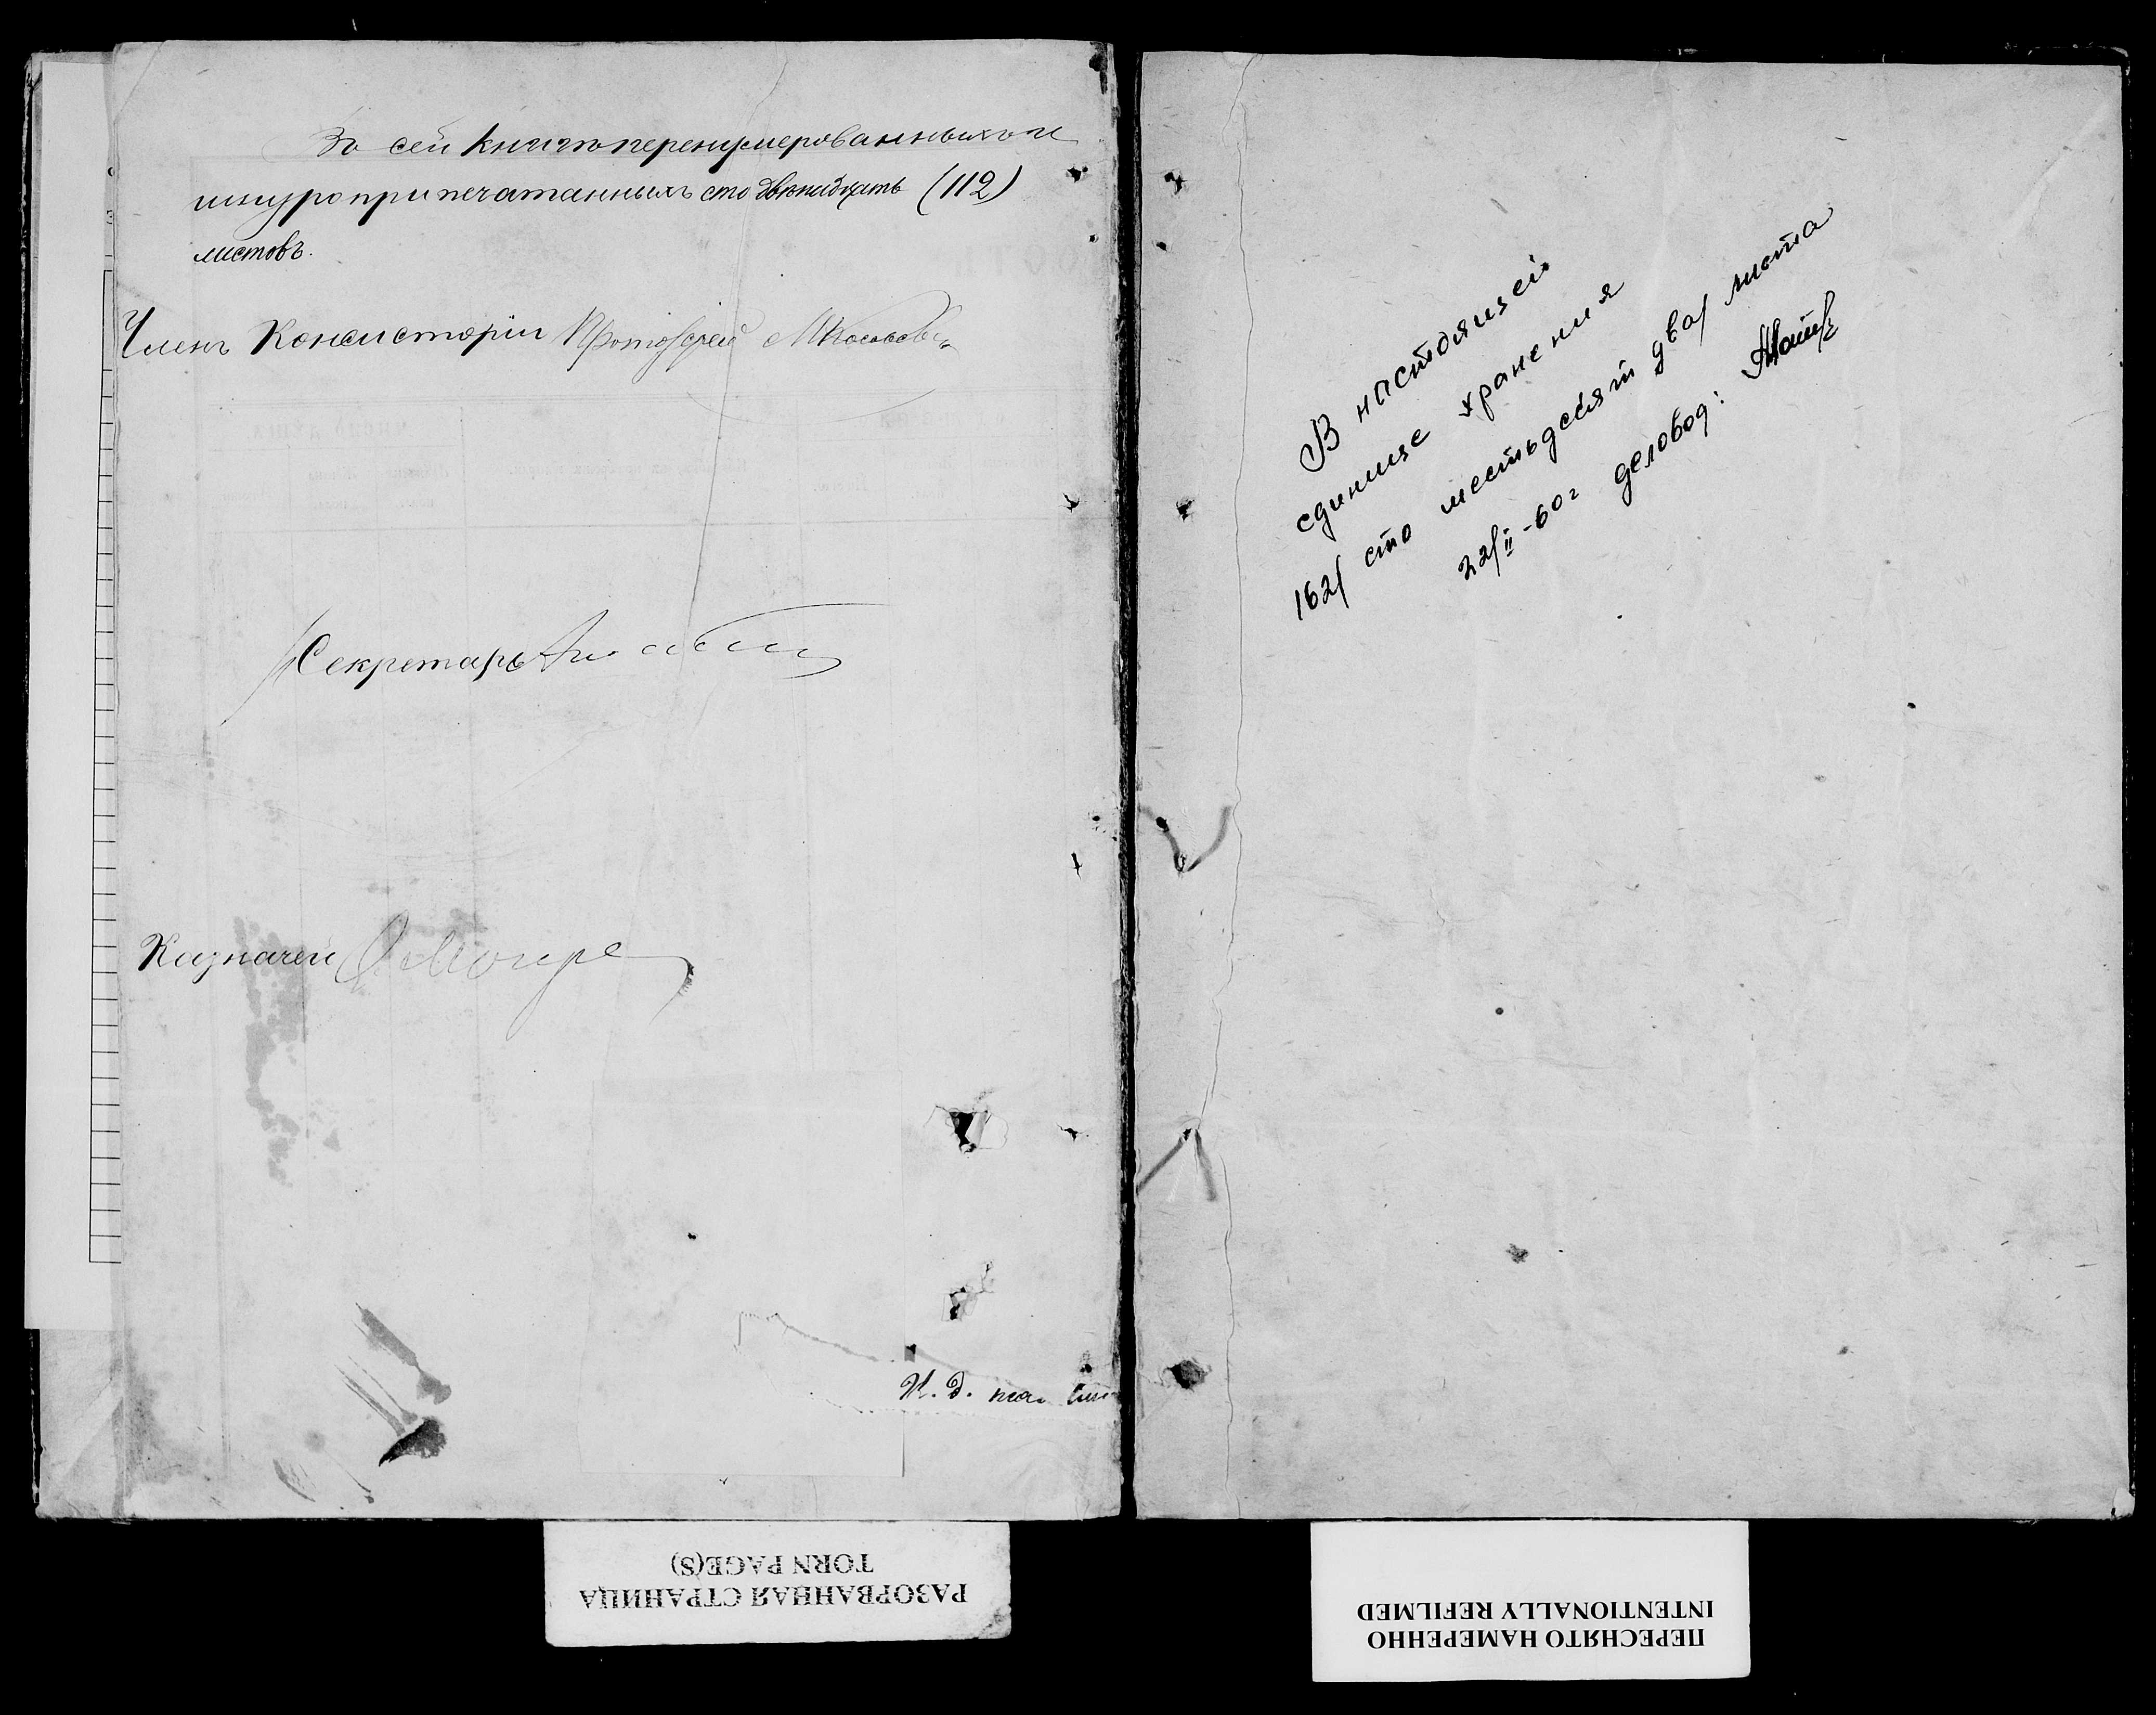 Въ сей книгѣ перенумерованныхъ и
шнуроприпечатанныхъ сто двѣнадцать (112)
листовъ.
Членъ Консисторіи Протоіерей
Секретарь
Казначей
И. д.
В настоящей
единице хранения
162/ сто шестьдесят два/ листа
22/II-60 г деловод:
РАЗОРВАННАЯ СТРАНИЦА
TORN PAGE(S)
ПЕРЕСНЯТО НАМЕРЕННО
INTENTIONALLY REFILMED